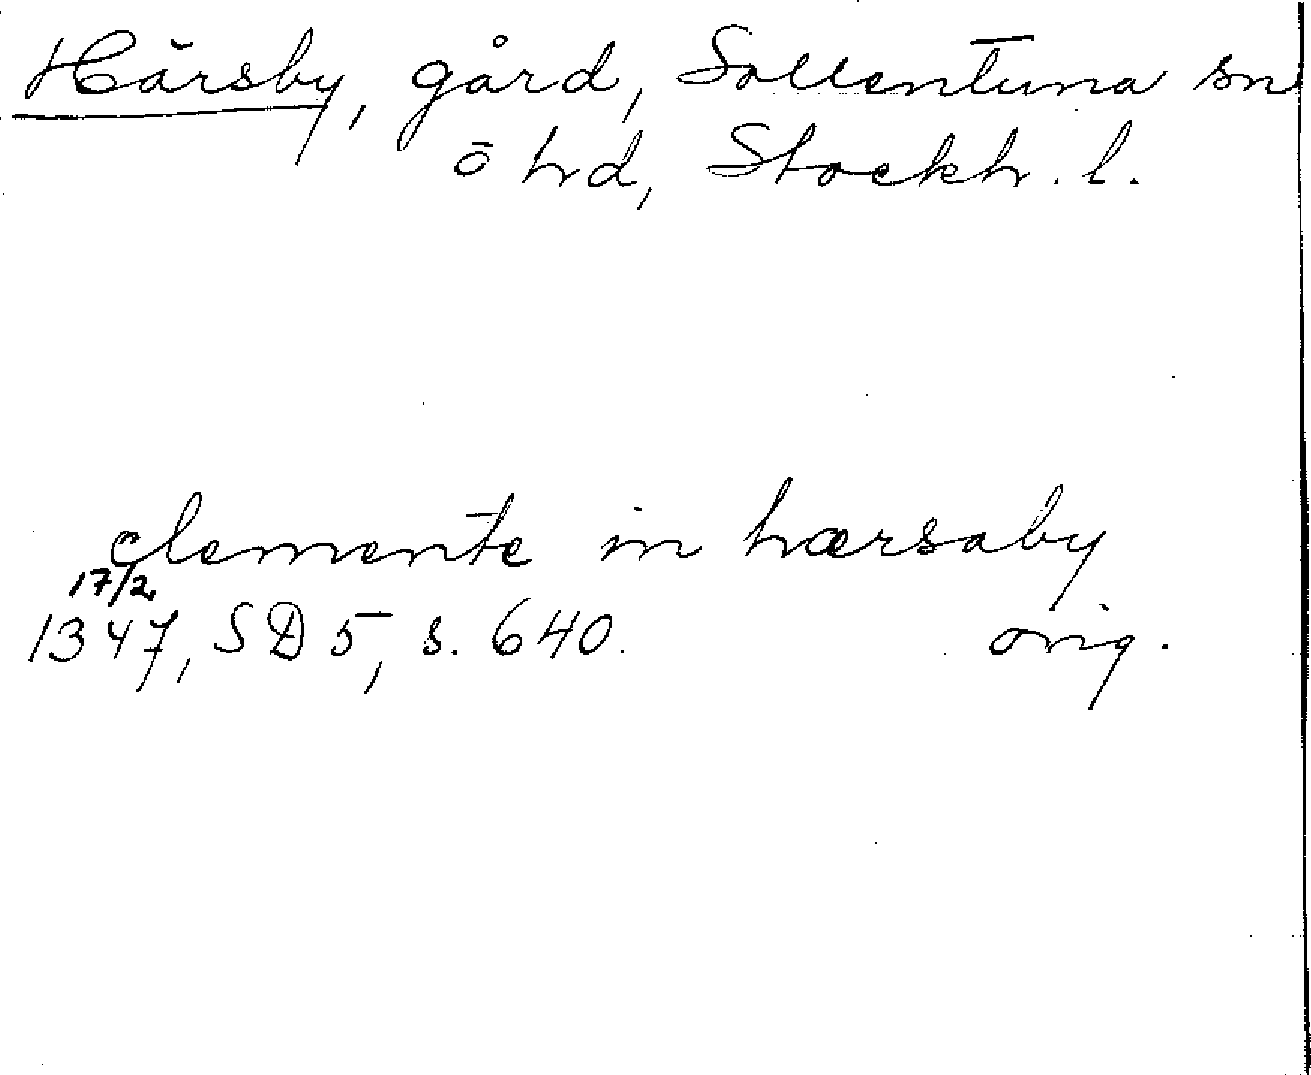 Härsby, gård, Sollentuna sn
ö hd, Stockh. l.
clemente in hærsaby
17/2
1347, SD 5, s. 640. orig.